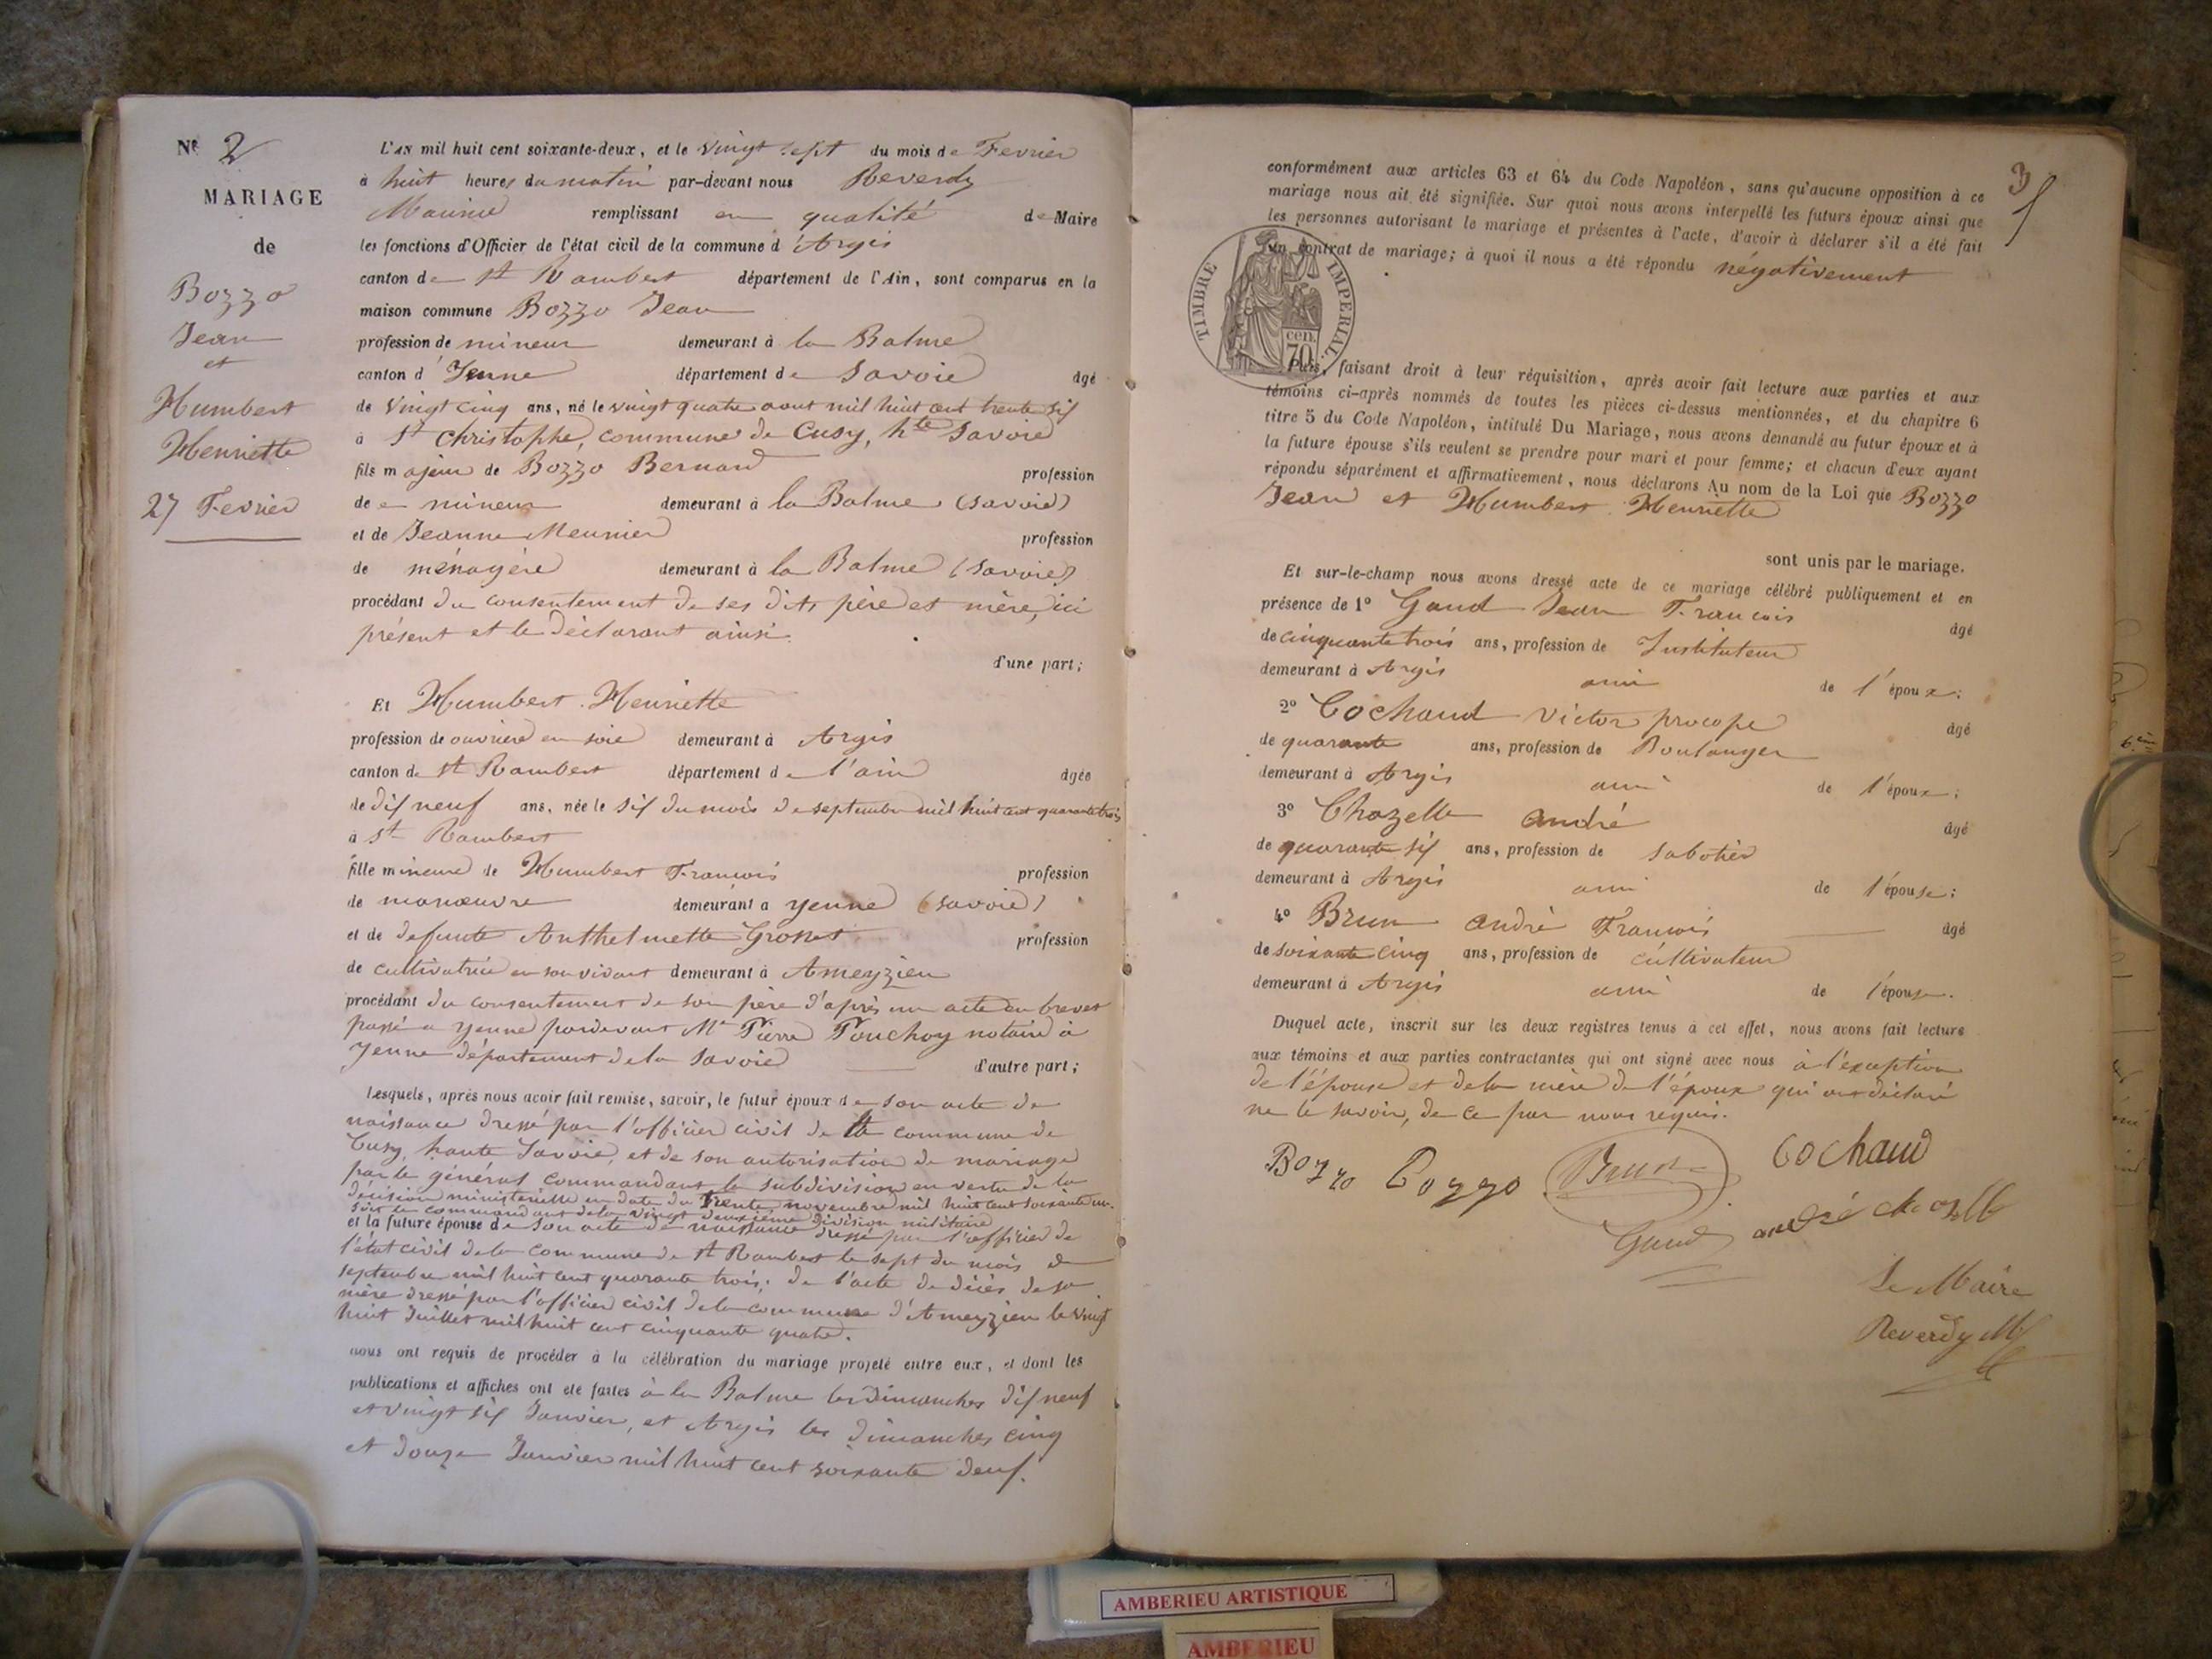 Nº 2
MARIAGE
de
Bozzo
Jean
et
Humbert
Henriette
27 Fevrier
L'AN mil huit cent soixante-deux, et le vingt sept du mois de Fevrier
à huit heures du matin par-devant nous Reverdy
Maurice remplissant en qualité de Maire
les fonctions d'Officier de l'état civil de la commune d'Argis
canton de St Rambert département de l'Ain, sont comparus en la
maison commune Bozzo Jean
profession de mineur demeurant à la Balme
canton d'Yenne département de Savoie âgé
de vingt cinq ans, né le vingt quatre aout mil huit cent trente six
à St Christophe, commune de Cusy, hte Savoie
fils majeur de Bozzo Bernard profession
de mineur demeurant à la Balme (Savoie)
et de Jeanne Meunier profession
de ménagère demeurant à la Balme (Savoie)
procédant du consentement de ses dits père et mère, ici
présent et le déclarant ainsi.
d'une part;
Et Humbert Henriette
profession de ouvrière en soie demeurant à Argis
canton de St Rambert département de l'ain âgée
de dix neuf ans, née le six du mois de septembre mil huit cent quarante trois
à St Rambert
fille mineure de Humbert Francois profession
de manœuvre demeurant à yenne (Savoie)
et de defunte Anthelmette Grosset profession
de cultivatrice en son vivant demeurant à Ameyzieu
procédant du consentement de son père d'après un acte en brevet
passé a yenne pardevant Me Pierre Fouchoy notaire à
yenne département de la Savoie d'autre part;
Lesquels, après nous avoir fait remise, savoir, le futur époux de son acte de
naissance dressé par l'officier civil de la commune de
Cusy, haute Savoie, et de son autorisation de mariage
par le général commandant la subdivision en vertu de la
décision ministérielle en date du trente novembre mil huit cent soixante un.
soit le commandant de la vingt deuxième division militaire
et la future épouse de son acte de naissance dressé par l'officier de
l'état civil de la commune de St Rambert le sept du mois de
septembre mil huit cent quarante trois; de l'acte de décès de sa
mère dressé par l'officier civil de la commune d'Ameyzieu le vingt
huit Juillet mil huit cent cinquante quatre.
nous ont requis de procéder à la célébration du mariage projeté entre eux, et dont les
publications et affiches ont été faites à la Balme les dimanches dix neuf
et vingt six Janvier, et Argis les dimanches cinq
et douze Janvier mil huit cent soixante deux.
3
conformément aux articles 63 et 64 du Code Napoléon, sans qu'aucune opposition à ce
mariage nous ait été signifiée. Sur quoi nous avons interpellé les futurs époux ainsi que
les personnes autorisant le mariage et présentes à l'acte, d'avoir à déclarer s'il a été fait
un contrat de mariage; à quoi il nous a été répondu négativement
TIMBRE IMPERIAL.
cen. 70
Puis, faisant droit à leur réquisition, après avoir fait lecture aux parties et aux
témoins ci-après nommés de toutes les pièces ci-dessus mentionnées, et du chapitre 6
titre 5 du Code Napoléon, intitulé Du Mariage, nous avons demandé au futur époux et à
la future épouse s'ils veulent se prendre pour mari et pour femme; et chacun d'eux ayant
répondu séparément et affirmativement, nous déclarons Au nom de la Loi que Bozzo
Jean et Humbert Henriette
sont unis par le mariage.
Et sur-le-champ nous avons dressé acte de ce mariage célébré publiquement et en
présence de 1º Gaud Jean Francois âgé
de cinquante trois ans, profession de Instituteur
demeurant à Argis ami de l'époux;
2º Cochaud victor procope âgé
de quarante ans, profession de Boulanger
demeurant à Argis ami de l'époux;
3º Chazelle andré âgé
de quarante six ans, profession de sabotier
demeurant à Argis ami de l'épouse;
4º Brun andré Francois âgé
de soixante cinq ans, profession de cultivateur
demeurant à Argis ami de l'épouse.
Duquel acte, inscrit sur les deux registres tenus à cet effet, nous avons fait lecture
aux témoins et aux parties contractantes qui ont signé avec nous à l'exception
de l'épouse et de la mère de l'époux qui ont déclaré
ne le savoir, de ce par nous requis.
Bozzo Bozzo Brun Cochaud
Gaud andré chazelle
Le Maire
Reverdy M
AMBERIEU ARTISTIQUE
AMBERIEU